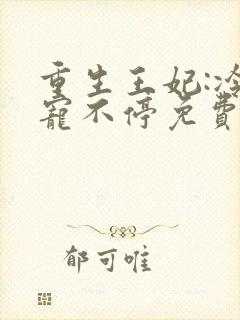 重生王妃:冷
宠不停免费
郁可唯